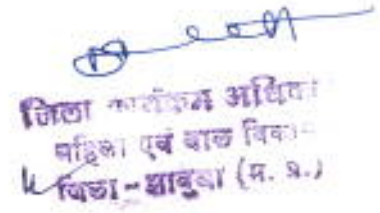 जिला कार्यक्रम अधिका
महिला एवं बाल विकास
जिला - झाबुआ (म. प्र.)